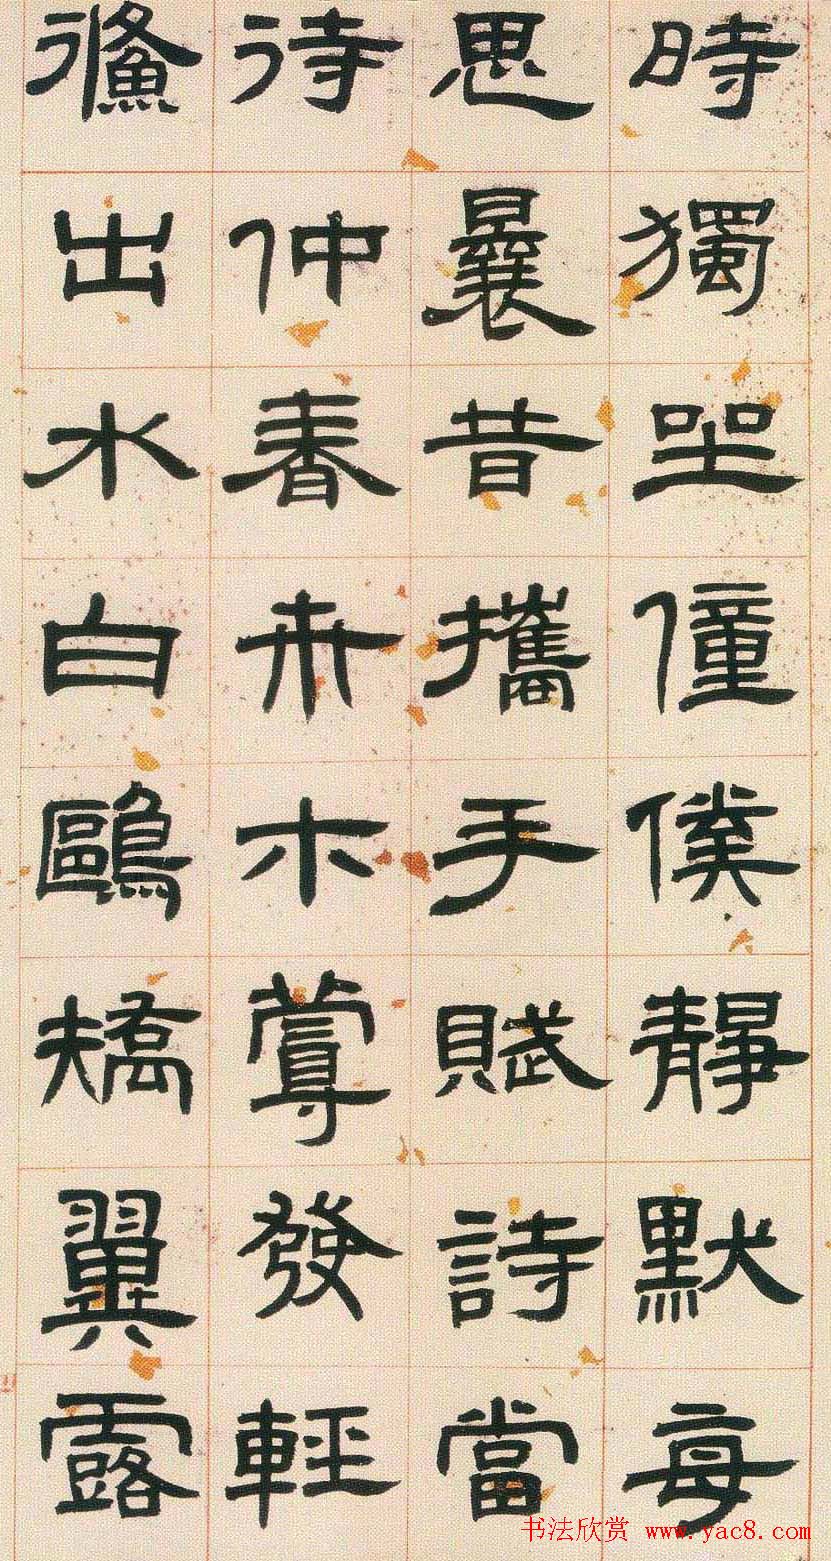 時獨坐僮僕靜默每
思曩昔攜手賦詩當
待仲春卉木蔓發輕
鯈出水白鷗矯翼露
书法欣赏 www.yac8.com